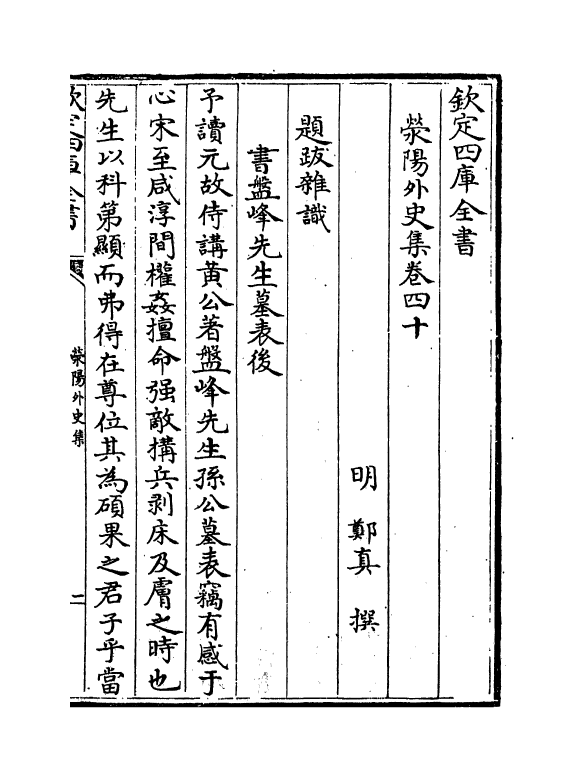 欽定四庫全書
滎陽外史集卷四十
明 鄭真 撰
題跋雜識
書盤峰先生墓表後
予讀元故侍講黃公著盤峰先生孫公墓表竊有感于
心宋至咸淳間權姦擅命强敵搆兵剥床及膚之時也
先生以科第顯而弗得在尊位其為碩果之君子乎當
欽定四庫全書
滎陽外史集
二